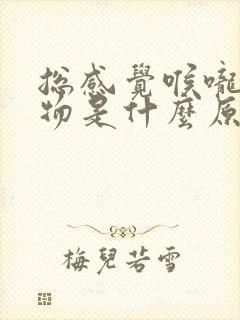 總感覺喉嚨
物是什麼原
梅兒若雪